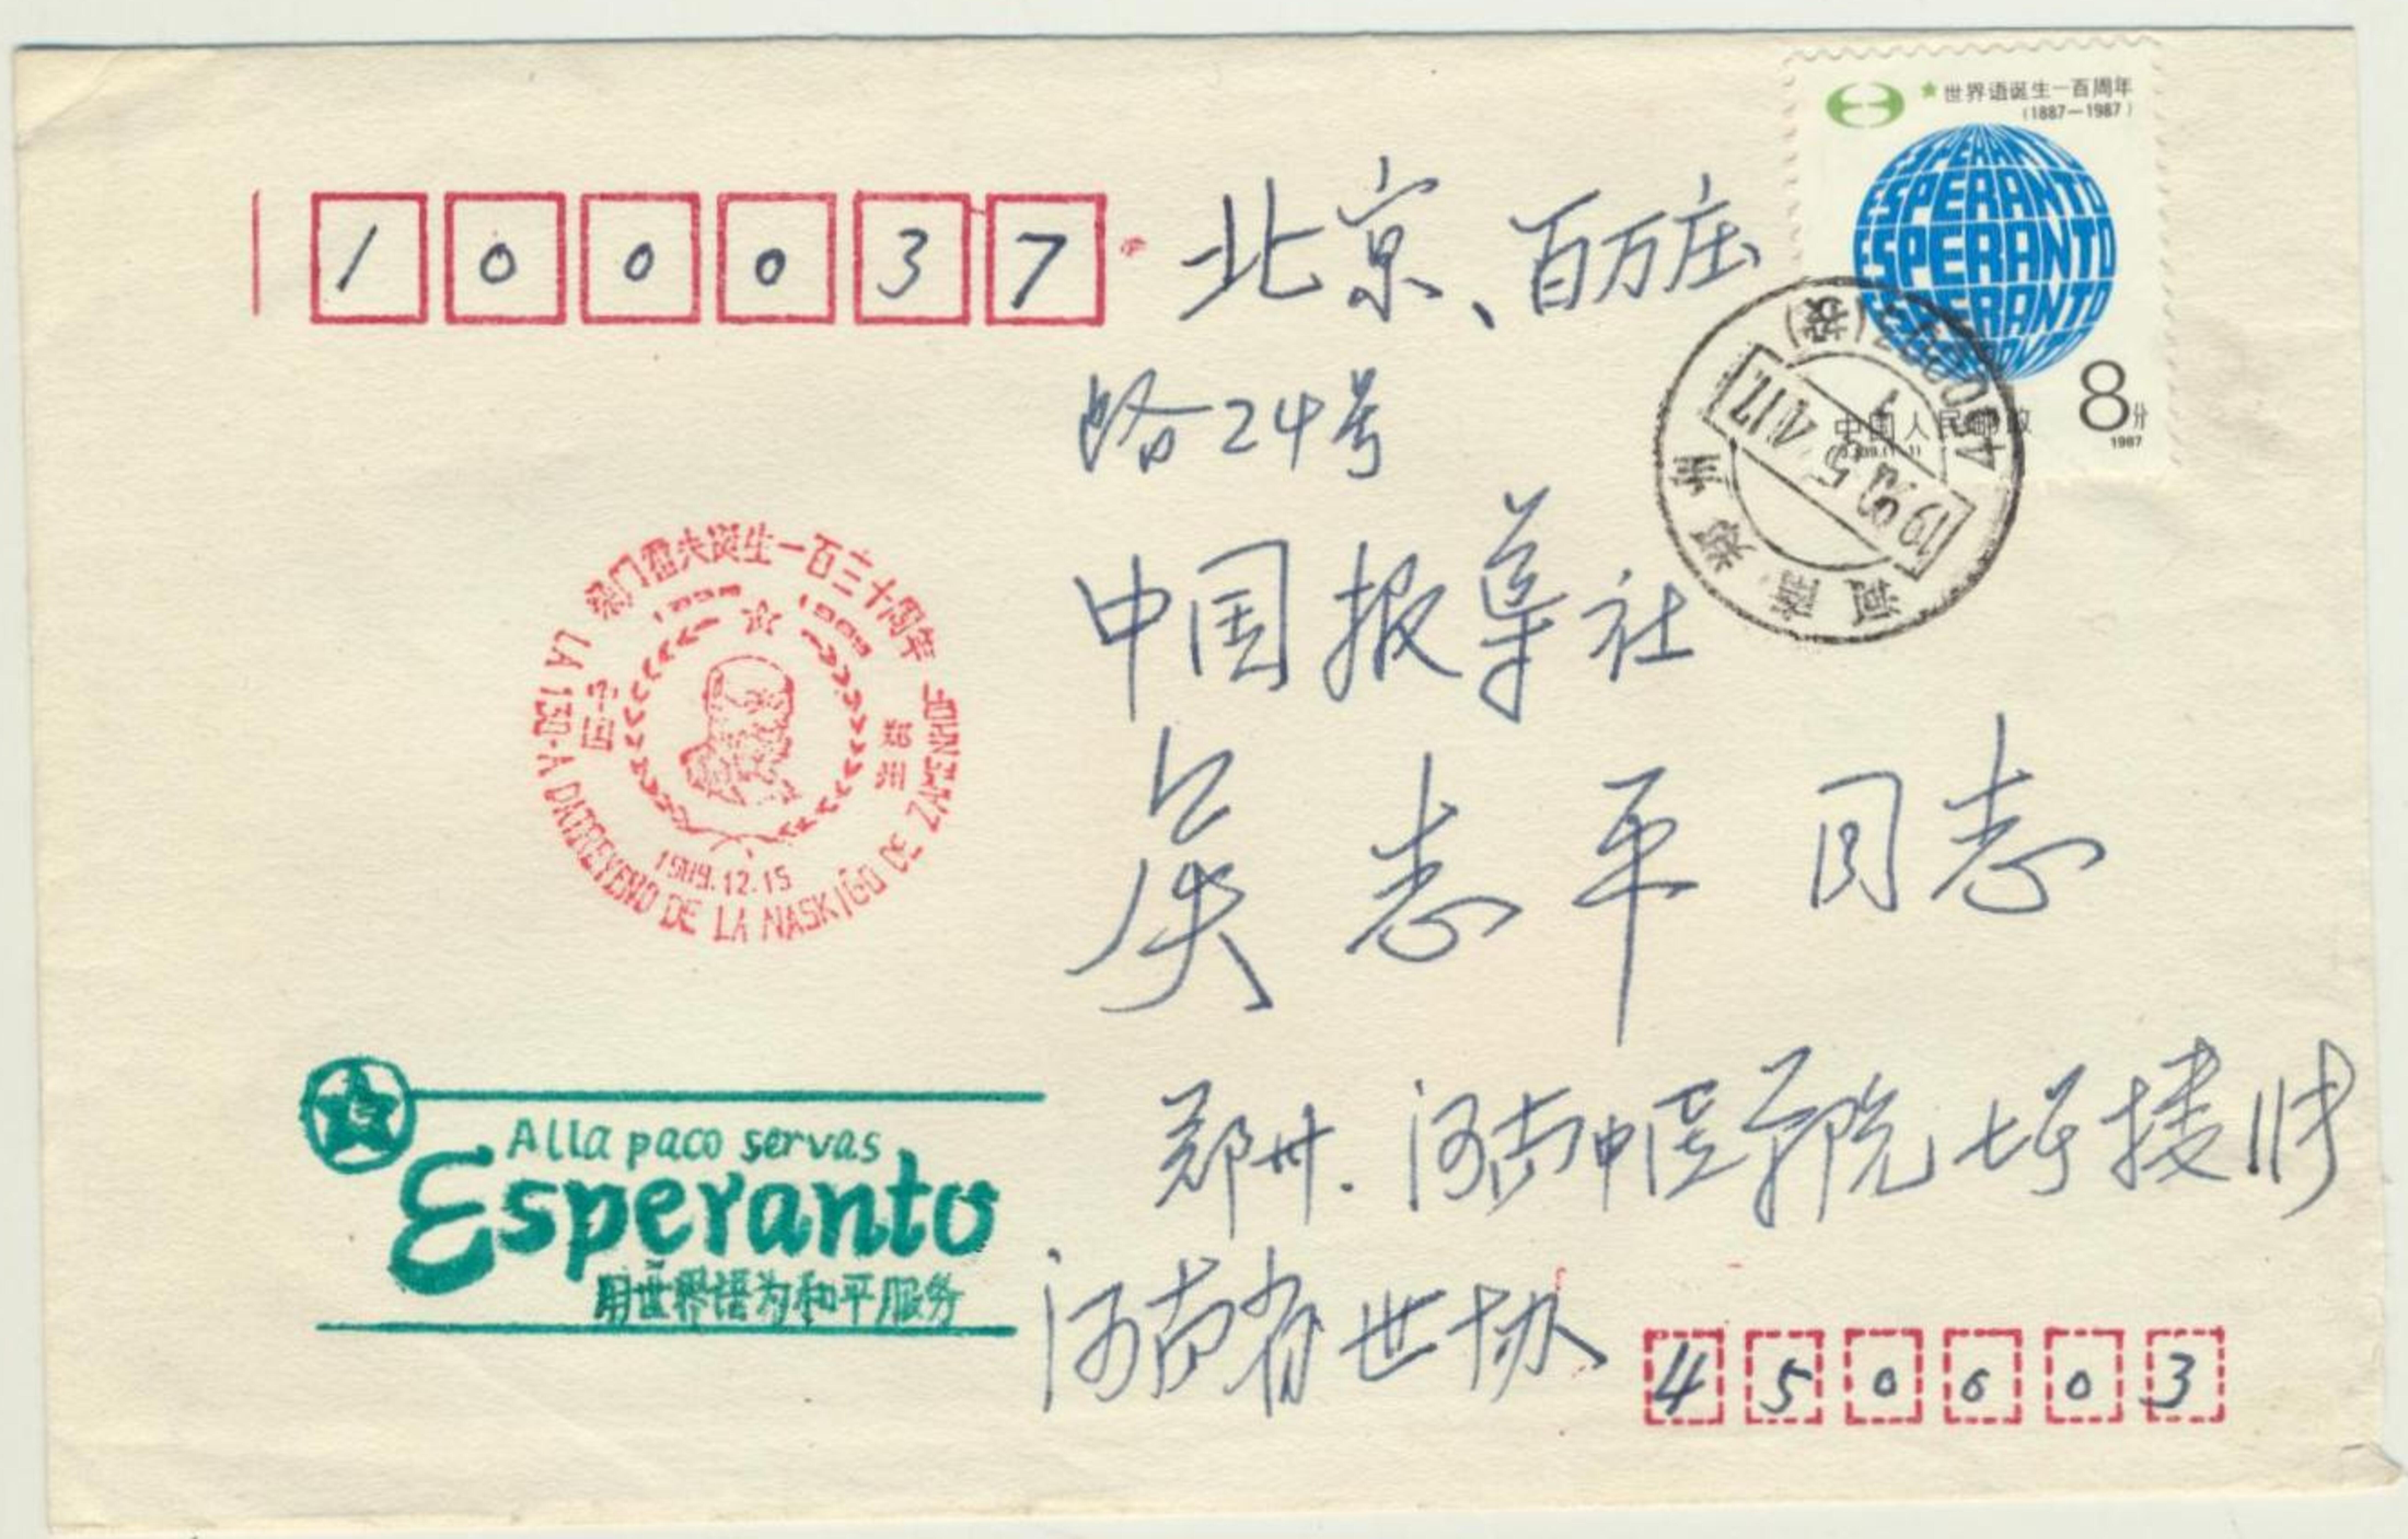 ★世界语诞生一百周年
(1887—1987)
ESPERANTO
ESPERANTO
ESPERANTO
ESPERANTO
8分
1987
中国人民邮政
100037
北京、百万庄
路24号
中国报导社
吴志平同志
河南 郑州
柴门霍夫诞生一百三十周年
中国
郑州
1989.12.15
LA 130-A DATREVENO DE LA NASKIĜO DE ZAMENHOF
Alla paco servas
Esperanto
用世界语为和平服务
郑州.河南中医学院
河南省世协
450003